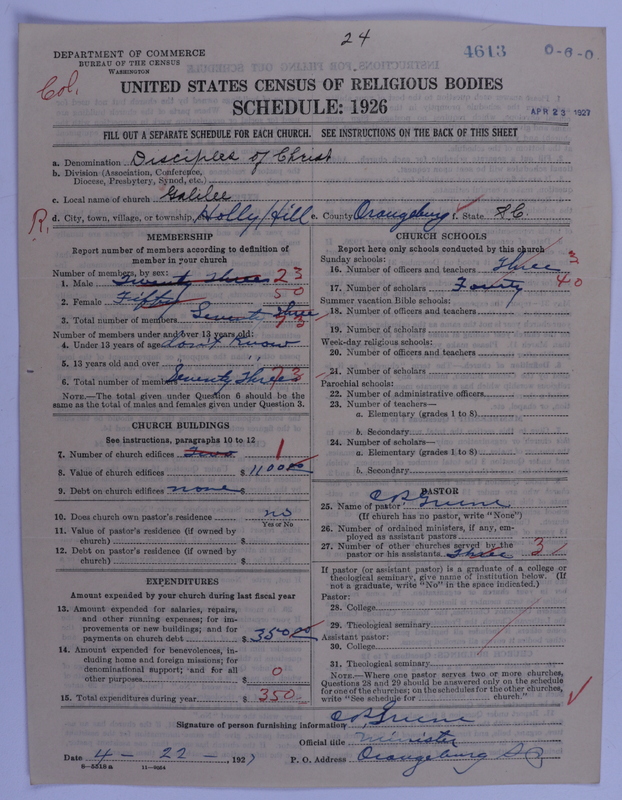 24
4613
0-6-0
DEPARTMENT OF COMMERCE
BUREAU OF THE CENSUS
WASHINGTON
Col.
UNITED STATES CENSUS OF RELIGIOUS BODIES
SCHEDULE: 1926
APR 23 1927
FILL OUT A SEPARATE SCHEDULE FOR EACH CHURCH. SEE INSTRUCTIONS ON THE BACK OF THIS SHEET
a. Denomination Disciples of Christ
b. Division (Association, Conference,
Diocese, Presbytery, Synod, etc.)
c. Local name of church Galilee
R. d. City, town, village, or township, Holly Hill e. County Orangeburg f. State S.C.
MEMBERSHIP
Report number of members according to definition of
member in your church
Number of members, by sex:
1. Male Twenty Three 23
2. Female Fifty 50
3. Total number of members Seventy Three 73
Number of members under and over 13 years old:
4. Under 13 years of age don't Know
5. 13 years old and over " "
6. Total number of members Seventy Three 73
NOTE.—The total given under Question 6 should be the
same as the total of males and females given under Question 3.
CHURCH BUILDINGS
See instructions, paragraphs 10 to 12
7. Number of church edifices 1
8. Value of church edifices $ 1100 00
9. Debt on church edifices none $
10. Does church own pastor's residence no
Yes or No
11. Value of pastor's residence (if owned by
church) $
12. Debt on pastor's residence (if owned by
church) $
EXPENDITURES
Amount expended by your church during last fiscal year
13. Amount expended for salaries, repairs,
and other running expenses; for im-
provements or new buildings; and for
payments on church debt $ 350 00
14. Amount expended for benevolences, in-
cluding home and foreign missions; for
denominational support; and for all
other purposes $ 0
15. Total expenditures during year $ 350
CHURCH SCHOOLS
Report here only schools conducted by this church
Sunday schools:
16. Number of officers and teachers Three 3
17. Number of scholars Fourty 40
Summer vacation Bible schools:
18. Number of officers and teachers
19. Number of scholars
Week-day religious schools:
20. Number of officers and teachers
21. Number of scholars
Parochial schools:
22. Number of administrative officers
23. Number of teachers—
a. Elementary (grades 1 to 8)
b. Secondary
24. Number of scholars—
a. Elementary (grades 1 to 8)
b. Secondary
PASTOR
25. Name of pastor
(If church has no pastor, write "None")
26. Number of ordained ministers, if any, em-
ployed as assistant pastors
27. Number of other churches served by the
pastor or his assistants Three 3
If pastor (or assistant pastor) is a graduate of a college or
theological seminary, give name of institution below. (If
not a graduate, write "No" in the space indicated.)
Pastor:
28. College
29. Theological seminary
Assistant pastor:
30. College
31. Theological seminary
NOTE.—Where one pastor serves two or more churches,
Questions 28 and 29 should be answered only on the schedule
for one of the churches; on the schedules for the other churches,
write "See schedule for church."
Signature of person furnishing information
Official title Minister
Date 4 - 22 - 1927 P. O. Address Orangeburg SC
8-5518a 11-9054